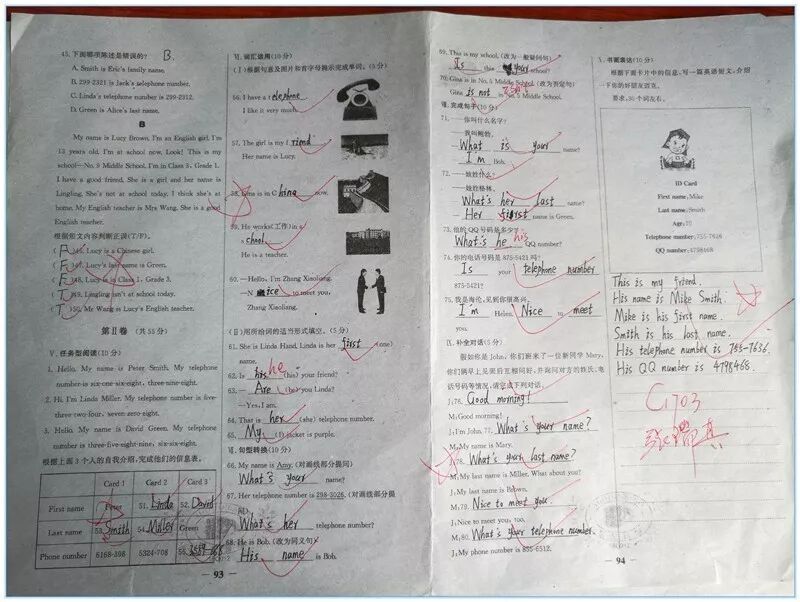 45. 下面哪项陈述是错误的? B.
A. Smith is Eric's family name.
B. 299-2321 is Jack's telephone number.
C. Linda's telephone number is 299-2312.
D. Green is Alice's last name.
B
My name is Lucy Brown. I'm an English girl. I'm
13 years old. I'm at school now. Look! This is my
school—No. 5 Middle School. I'm in Class 3, Grade 1.
I have a good friend. She is a girl and her name is
Lingling. She's not at school today. I think she's at
home. My English teacher is Mrs Wang. She is a good
English teacher.
根据短文内容判断正误(T/F)。
(F)46. Lucy is a Chinese girl.
(F)47. Lucy's last name is Green.
(F)48. Lucy is in Class 1, Grade 3.
(T)49. Lingling isn't at school today.
(T)50. Mr Wang is Lucy's English teacher.
第Ⅱ卷 (共55分)
Ⅴ. 任务型阅读(10分)
1. Hello. My name is Peter Smith. My telephone
number is six-one-six-eight, three-nine-eight.
2. Hi, I'm Linda Miller. My telephone number is five-
three-two-four, seven-zero-eight.
3. Hello. My name is David Green. My telephone
number is three-five-eight-nine, six-six-eight.
根据上面3个人的自我介绍,完成他们的信息表。
Card 1 Card 2 Card 3
First name Peter 51. Linda 52. David
Last name 53. Smith 54. Miller Green
Phone number 6168-398 5324-708 55. 3589-668
— 93 —
Ⅵ. 词汇运用(10分)
(Ⅰ)根据句意及图片和首字母提示完成单词。(5分)
56. I have a t elephone
I like it very much.
57. The girl is my f riend
Her name is Lucy.
58. Gina is in C hina now.
59. He works(工作) in a
s chool
He is a teacher.
60. —Hello, I'm Zhang Xiaoliang.
—N ice to meet you,
Zhang Xiaoliang.
(Ⅱ)用所给词的适当形式填空。(5分)
61. She is Linda Hand. Linda is her first (one)
name.
62. Is his he (his) your friend?
63. — Are (be) you Linda?
—Yes, I am.
64. That is her (she) telephone number.
65. My (I) jacket is purple.
Ⅶ. 句型转换(10分)
66. My name is Amy. (对画线部分提问)
What's your name?
67. Her telephone number is 298-3026. (对画线部分提
问)
What's her telephone number?
68. He is Bob. (改为同义句)
His name is Bob.
69. This is my school. (改为一般疑问句)
Is this your school?
70. Gina is in No. 5 Middle School. (改为否定句)
Gina is not in No. 5 Middle School.
Ⅷ. 完成句子(10分)
71. ——你叫什么名字?
——我叫鲍勃。
—What is your name?
—I'm Bob.
72. ——她姓什么?
——她姓格林。
—What's her last name?
—Her first name is Green.
73. 他的QQ号码是多少?
What's he his QQ number?
74. 你的电话号码是875-5421吗?
Is your telephone number
875-5421?
75. 我是海伦,见到你很高兴。
I'm Helen. Nice to meet
you.
Ⅸ. 补全对话(5分)
假如你是John,你们班来了一位新同学Mary,
J:76. Good morning!
M:Good morning!
J:I'm John. 77. What's your name?
M:My name is Mary.
J:78. What's your last name?
M:My last name is Miller. What about you?
J:My last name is Brown.
M:79. Nice to meet you.
J:Nice to meet you, too.
M:80. What's your telephone number.
J:My phone number is 855-6512.
— 94 —
Ⅹ. 书面表达(10分)
根据下面卡片中的信息,写一篇英语短文,介绍
一下你的好朋友迈克。
要求:30个词左右。
ID Card
First name: Mike
Last name: Smith
Age: 10
Telephone number: 755-7626
QQ number: 4798468
This is my friend.
His name is Mike Smith.
Mike is his first name.
Smith is his last name.
His telephone number is 755-7636.
His QQ number is 4798468.
C1703